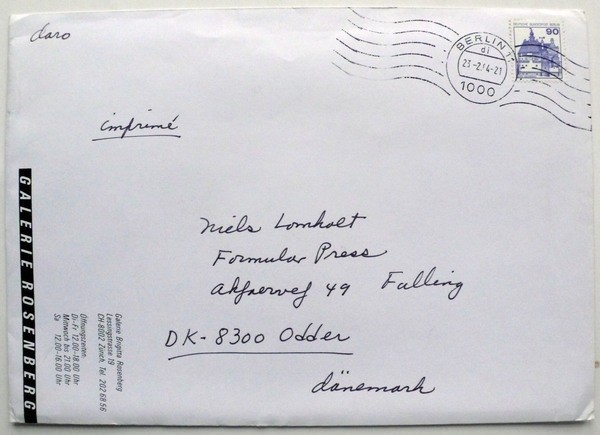 daro
BERLIN 11
di
23-2.14-21
1000
90
imprimé
Niels Lomholt
Formular Press
49 Falling
DK-8300 Odder
dänemark
GALERIE ROSENBERG
Galerie Brigitta Rosenberg
Lessingstrasse 19
CH-8002 Zürich, Tel. 202 68 56
Öffnungszeiten:
Di-Fr 12.00-18.00 Uhr
Mittwoch bis 21.00 Uhr
Sa 12.00-16.00 Uhr